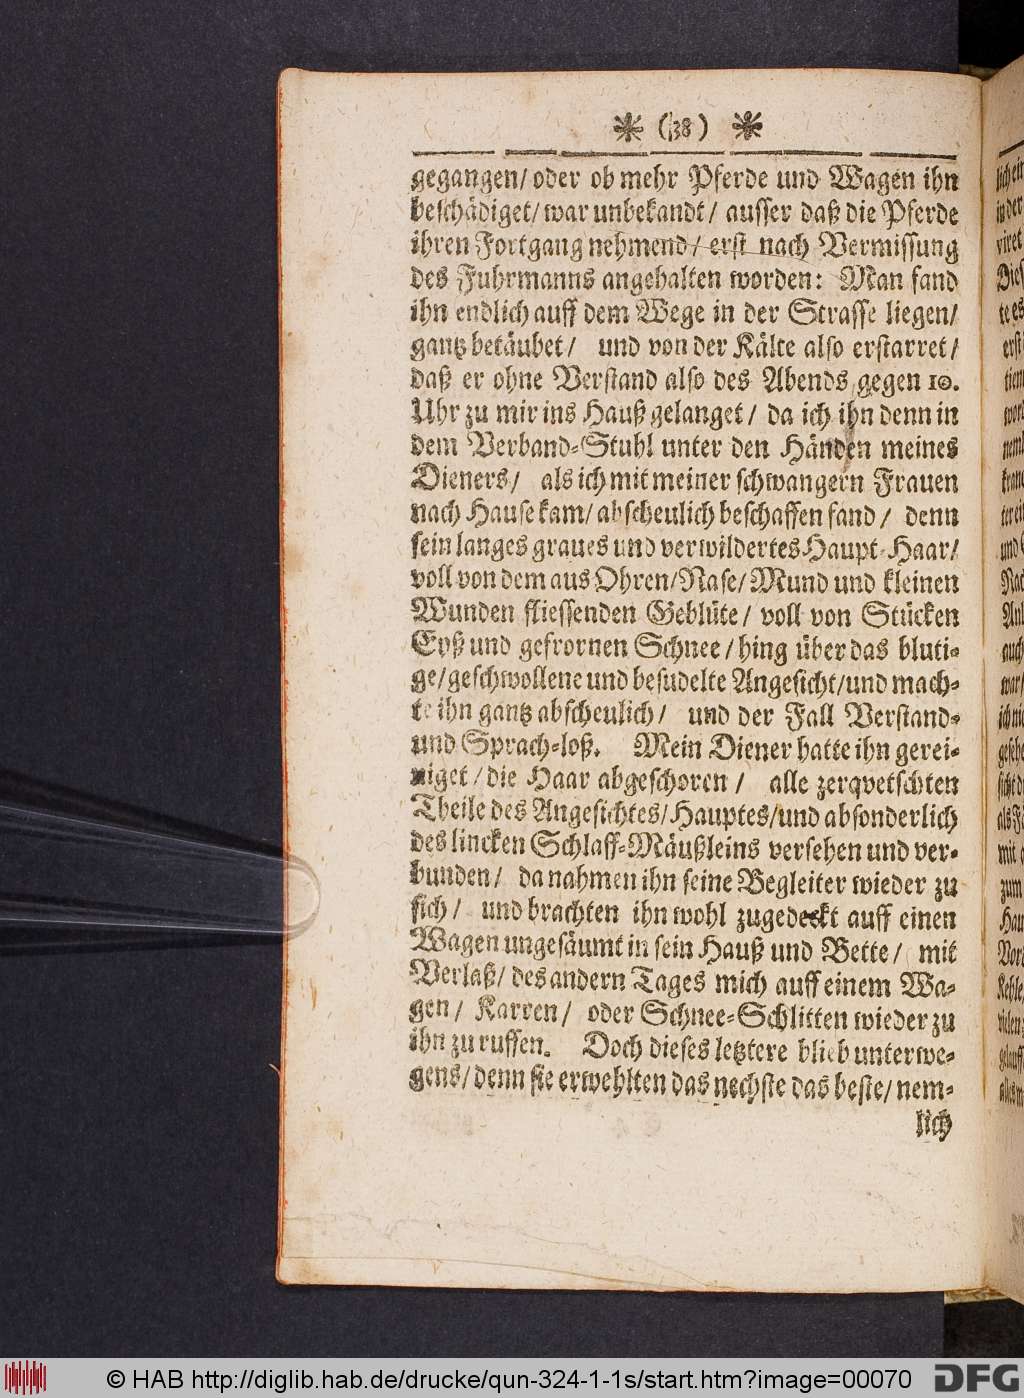 (38)
gegangen/ oder ob mehr Pferde und Wagen ihn
beschädiget/ war unbekandt/ ausser daß die Pferde
ihren Fortgang nehmend/ erst nach Vermissung
des Fuhrmanns angehalten worden: Man fand
ihn endlich auff dem Wege in der Strasse liegen/
gantz betäubet/ und von der Kälte also erstarret/
daß er ohne Verstand also des Abends gegen 10.
Uhr zu mir ins Hauß gelanget/ da ich ihn denn in
dem Verband-Stuhl unter den Händen meines
Dieners/ als ich mit meiner schwangern Frauen
nach Hause kam/ abscheulich beschaffen fand/ denn
sein langes graues und verwildertes Haupt-Haar/
voll von dem aus Ohren/ Nase/ Mund und kleinen
Wunden fliessenden Geblüte/ voll von Stücken
Eyß und gefrornen Schnee/ hing über das bluti-
ge/ geschwollene und besudelte Angesicht/ und mach-
te ihn gantz abscheulich/ und der Fall Verstand-
und Sprach-loß. Mein Diener hatte ihn gerei-
niget/ die Haar abgeschoren/ alle zerqvetschten
Theile des Angesichtes/ Hauptes/ und absonderlich
des lincken Schlaff-Mäußleins versehen und ver-
bunden/ da nahmen ihn seine Begleiter wieder zu
sich/ und brachten ihn wohl zugedeckt auff einen
Wagen ungesäumt in sein Hauß und Bette/ mit
Verlaß/ des andern Tages mich auff einem Wa-
gen/ Karren/ oder Schnee-Schlitten wieder zu
ihn zu ruffen. Doch dieses letztere blieb unterwe-
gens/ denn sie erwehlten das nechste das beste/ nem-
lich
© HAB http://diglib.hab.de/drucke/qun-324-1-1s/start.htm?image=00070
DFG